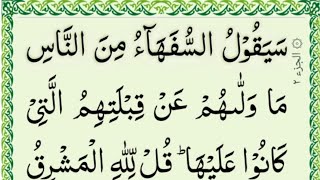 سَيَقُوْلُ السُّفَهَآءُ مِنَ النَّاسِ
مَا وَلّٰىهُمْ عَنْ قِبْلَتِهِمُ الَّتِيْ
كَانُوْا عَلَيْهَا ؕ قُلْ لِّلّٰهِ الْمَشْرِقُ
الجزء ٢